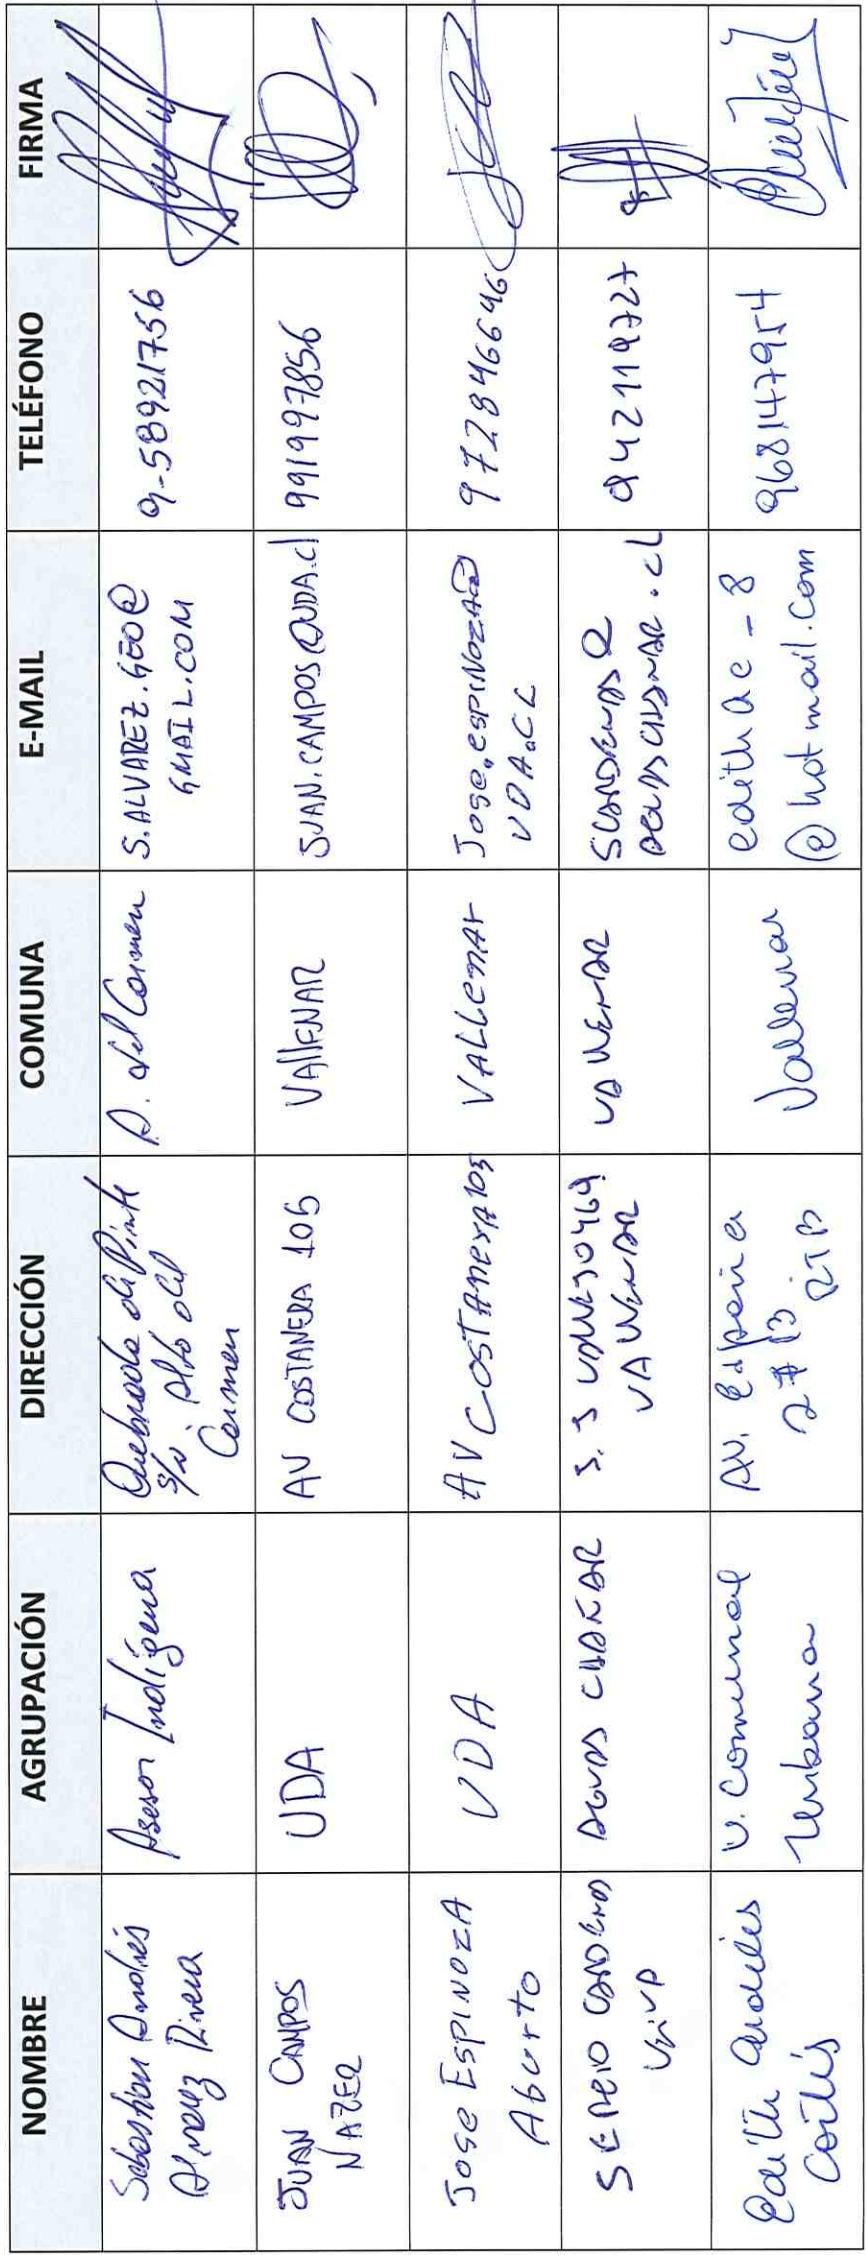 NOMBRE AGRUPACIÓN DIRECCIÓN COMUNA E-MAIL TELÉFONO FIRMA
Sebastian Andrés
Alvarez Rivera
Asesor Indígena
Quebrada de Pinte
S/N. Alto del
Carmen
A. del Carmen
S.ALVAREZ.GEO@
GMAIL.COM
9-58921756
JUAN CAMPOS
NAZER
UDA
AV COSTANERA 105
VAllENAR
JUAN.CAMPOS@UDA.cl
991997856
Jose ESPINOZA
Aburto
UDA
AV COSTAnerA 105
VALLenAr
Jose.espiNozA@
UDA.CL
972846646
SERGIO
AGUAS CHAÑAR
VALLENAR
VALLENAR
AGUASCHANAR.CL
942119727
Edith
Cortés
U. Comunal
Urbana
AV. España
Vallenar
edithac-8
@hotmail.com
968147954